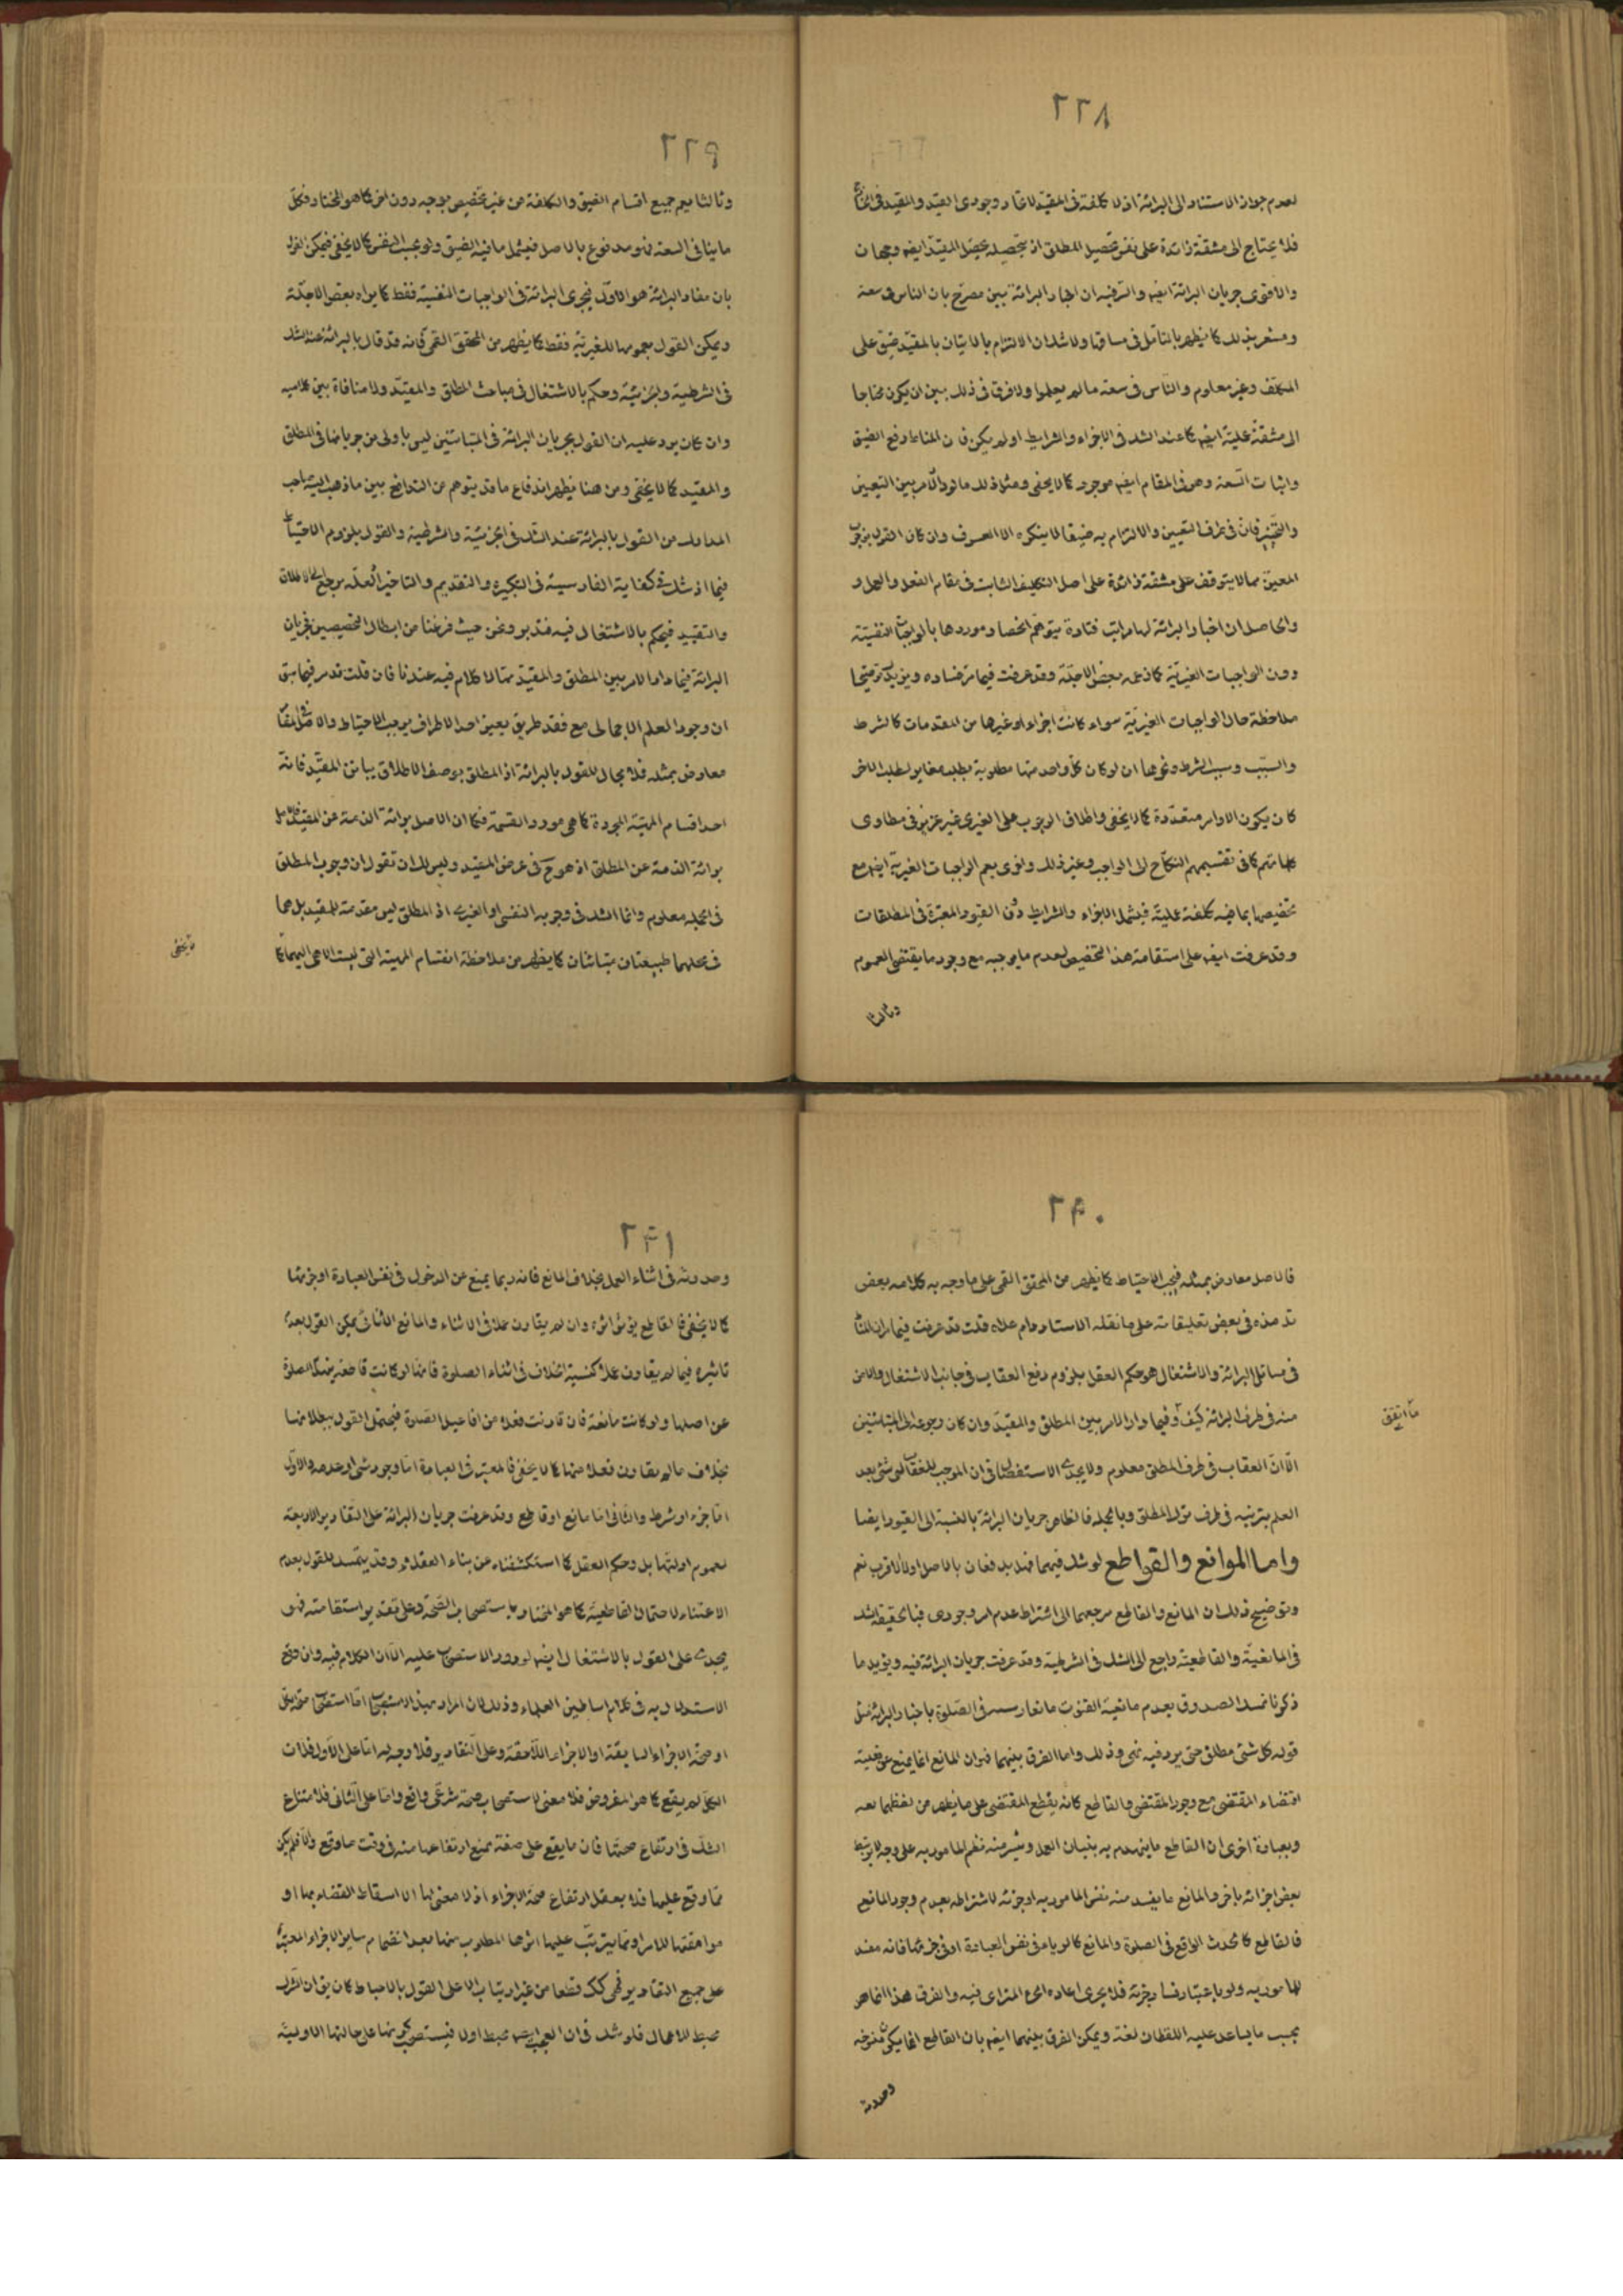 ٢٣٨
لعدم جواز الاستناد الى البرائة اذ لا كلفة فى المقيد لاتحاد وجودى القيد والمقيد فى الخارج
فلا يحتاج الى مشقة زائدة على نفس تحصيل المطلق اذ بتحصيله يحصل المقيد ايضا وجهان
والاقوى جريان البرائة ايضا والسرفيه ان اخبار البرائة بين مصرح بان الناس فى سعة
ومشعر بذلك كما يظهر بالتأمل فى مساقها ولا شك ان الالتزام بالاتيان بالمقيد ضيق على
المكلف وغير معلوم والناس فى سعة ما لم يعلموا ولا فرق فى ذلك بين ان يكون محتاجا
الى مشقة عملية ايضا كما عند الشك فى الاجزاء والشرايط او لم يكن فان المناط رفع الضيق
واثبات السعة وهو فى المقام ايضا موجود كما لا يخفى ومثل ذلك ما لو دار الامر بين التعيين
والتخيير فان فى طرف التعيين والالتزام به ضيقا لا ينكره الا العسوف وان كان القول بوجوب
المعين مما لا يتوقف على مشقة زائدة على اصل التكليف الثابت فى مقام الفعل والعمل و
والحاصل ان اخبار البرائة لها مراتب فتارة يتوهم انحصار موردها بالواجبات النفسية
دون الواجبات الغيرية كما زعمه بعض الاجلة وقد عرفت فيما مر فساده ويزيدك توضيحا
ملاحظة حال الواجبات الغيرية سواء كانت اجزاء او غيرها من المقدمات كالشرط
والسبب وسبب الشرط ونحوهما ان لو كان كل واحد منها مطلوبة بطلب مغاير لطلب الاخر
كان يكون الاوامر متعددة كما لا يخفى واطلاق الوجوب على الغيرى غير عزيز فى مطاوى
كلماتهم كما فى تقسيمهم النكاح الى الواجب وغير ذلك واخرى يعم الواجبات الغيرية ايضا مع
تخصيصها بما فيه كلفة عملية فيشمل الاجزاء والشرايط دون القيود المعتبرة فى المطلقات
وقد عرفت ايضا على استقامة هذا التخصيص لعدم ما يوجبه مع وجود ما يقتضى العموم
وثالثا
٢٣٩
وثالثا يعم جميع اقسام الضيق والكلفة من غير تخصيص بوجه دون اخر كما هو المختار فكل
ما ينافى السعة فهو مدفوع بالاصل فيشمل ما فيه الضيق ولو بحسب النفس كما لا يخفى فيمكن القول
بان مفاد البرائة هو الاول فيجرى البرائة فى الواجبات النفسية فقط كما يراه بعض الاجلة
ويمكن القول بعمومها للغيرية فقط كما يظهر من المحقق القمى فانه قد قال بالبرائة عند الشك
فى الشرطية والجزئية وحكم بالاشتغال فى مباحث المطلق والمقيد ولا منافاة بين كلاميه
وان كان يرد عليه ان القول بجريان البرائة فى المتباينين ليس باولى من جريانها فى المطلق
والمقيد كما لا يخفى ومن هنا يظهر اندفاع ما قد يتوهم من التدافع بين ما ذهب اليه صاحب
المدارك من القول بالبرائة عند الشك فى الجزئية والشرطية والقول بلزوم الاحتياط
فيما اذ شك فى كفاية الفارسية فى التكبيرة والتقديم والتاخير لعله يرجع الى الاطلاق
والتقييد فيحكم بالاشتغال فيه فتدبر ونحن حيث فرغنا من ابطال التخصيصين فجريان
البرائة فيما دار الامر بين المطلق والمقيد مما لا كلام فيه عندنا فان قلت قد مر فيما سبق
ان وجود العلم الاجمالى مع فقد طريق يعين احد الاطراف يوجب الاحتياط والاصل فى المقام
معارض بمثله فلا مجال للقول بالبرائة اذ المطلق بوصف الاطلاق يباين المقيد فانه
احد اقسام المهية المجردة كما هى مورد القسمة فكما ان الاصل برائة الذمة عن المقيد فالاصل
برائة الذمة عن المطلق اذ هو ح فى عرض المقيد وليس لك ان تقول ان وجوب المطلق
فى الجملة معلوم وانما الشك فى وجوبه النفسى او الغيرى اذ المطلق ليس مقدمة للمقيد بل هما
فى محلهما طبيعتان متباينتان كما يظهر من ملاحظة انقسام المهية التى ليست الا هى اليهما كما
لا يخفى
٢٤٠
فالاصل معارض بمثله فيجب الاحتياط كما يظهر من المحقق القمى على ما وجه به كلامه بعض
تلامذه فى بعض تعليقاته على ما نقله الاستاد دام علاه قلت قد عرفت فيما مر ان المناط
فى مسائل البرائة والاشتغال هو حكم العقل بلزوم دفع العقاب فى جانب الاشتغال والامن
منه فى طرف البرائة كيف وفيما دار الامر بين المطلق والمقيد وان كان رجوعه الى المتباينين
ما اتفق
الا ان العقاب فى طرف المطلق معلوم ولا يجدى الاستفصال فى ان الموجب للعقاب اى شئ بعد
العلم بترتبه فى طرف ترك المطلق وبالجملة فالظاهر جريان البرائة بالنسبة الى القيود ايضا
واما الموانع والقواطع لو شك فيهما فهل يدفعان بالاصل او لا الاقرب نعم
وتوضيح ذلك ان المانع والقاطع مرجعهما الى اشتراط عدم امر وجودى فبالحقيقة الشك
فى المانعية والقاطعية راجع الى الشك فى الشرطية وقد عرفت جريان البرائة فيه ويؤيد ما
ذكرنا تمسك الصدوق بعدم مانعية القنوت بالفارسية فى الصلوة باخبار البرائة مثل
قوله كل شئ مطلق حتى يرد فيه نهى وذلك واما الفرق بينهما فهو ان المانع انما يمنع عن فعلية
اقتضاء المقتضى مع وجود المقتضى والقاطع كانه يقطع المقتضى على ما يظهر من لفظهما لغة
وبعبارة اخرى ان القاطع ما ينهدم به بنيان العمل وينثر منه نظم المامور به على وجه لا يرتبط
بعض اجزائه باخر والمانع ما يفسد منه نفس المامور به او جزئه لاشتراطه بعدم وجود المانع
فالقاطع كالحدث الواقع فى الصلوة والمانع كالرياء فى نفس العبادة او فى جزئها فانه مفسد
للمامور به ولو باعتبار فساد جزئه فلا يجرى اعادة الجزء المترائى فيه والفرق هذا انما هو
بحسب ما يساعد عليه اللفظان لغة ويمكن الفرق بينهما ايضا بان القاطع انما يكون
وحدوثه
٢٤١
وحدوثه فى اثناء العمل بخلاف المانع فانه ربما يمنع عن الدخول فى نفس العبادة او جزئها
كما لا يخفى فالقاطع يؤثر اثره وان لم يقارن عملا فى الاثناء والمانع الثانى يمكن القول بعدم
تاثيره فيما لم يقارن عملا كنسية الخلاف فى اثناء الصلوة فانها لو كانت قاطعة
عن اصلها ولو كانت مانعة فان قارنت فعلا من افاعيل الصلوة فيحتمل القول ببطلانها
بخلاف ما لم يقارن فعلا منها كما لا يخفى فالمعتبر فى العبادة اما وجود شئ او عدمه والاول
اما جزء او شرط والثانى اما مانع او قاطع وقد عرفت جريان البرائة على التقادير الاربعة
لعموم ادلتها بل وحكم العقل كما استكشفناه عن بناء العقلاء وقد يتمسك للقول بعدم
الاعتناء لاحتمال القاطعية كما هو المختار باستصحاب الصحة وعلى تقدير استقامته فهو
يجدى على القول بالاشتغال ايضا لورود الاستصحاب عليه الا ان الكلام فيه وان وقع
الاستدلال به فى كلام اساطين العلماء وذلك لان المراد بهذا الاستصحاب اما استصحاب صحة الكل
او صحة الاجزاء السابقة او الاجزاء اللاحقة وعلى التقادير فلا وجه له اما على الاول فلان
الكل لم يقع كما هو المفروض فلا معنى لاستصحاب صحة شرعى واقع واما على الثانى فلامتناع
الشك فى ارتفاع صحتها فان ما يقع على صفة يمنع ارتفاعها منه فى وقت ما وقع والا فلم يكن
مما وقع عليها فلا يعقل ارتفاع صحة الاجزاء اذ لا معنى لها الا اسقاط القضاء بها او
موافقتها للامر او مما يترتب عليها اثرها المطلوب منها بعد انضمام ساير الاجزاء المعتبرة
على جميع التقادير فهى كك قطعا من غير ارتياب الا على القول بالاحباط كان يق ان الشرك
محبط للاعمال فلو شك فى ان العجب محبط اولا فيستصحب كونها على حالتها الاولية